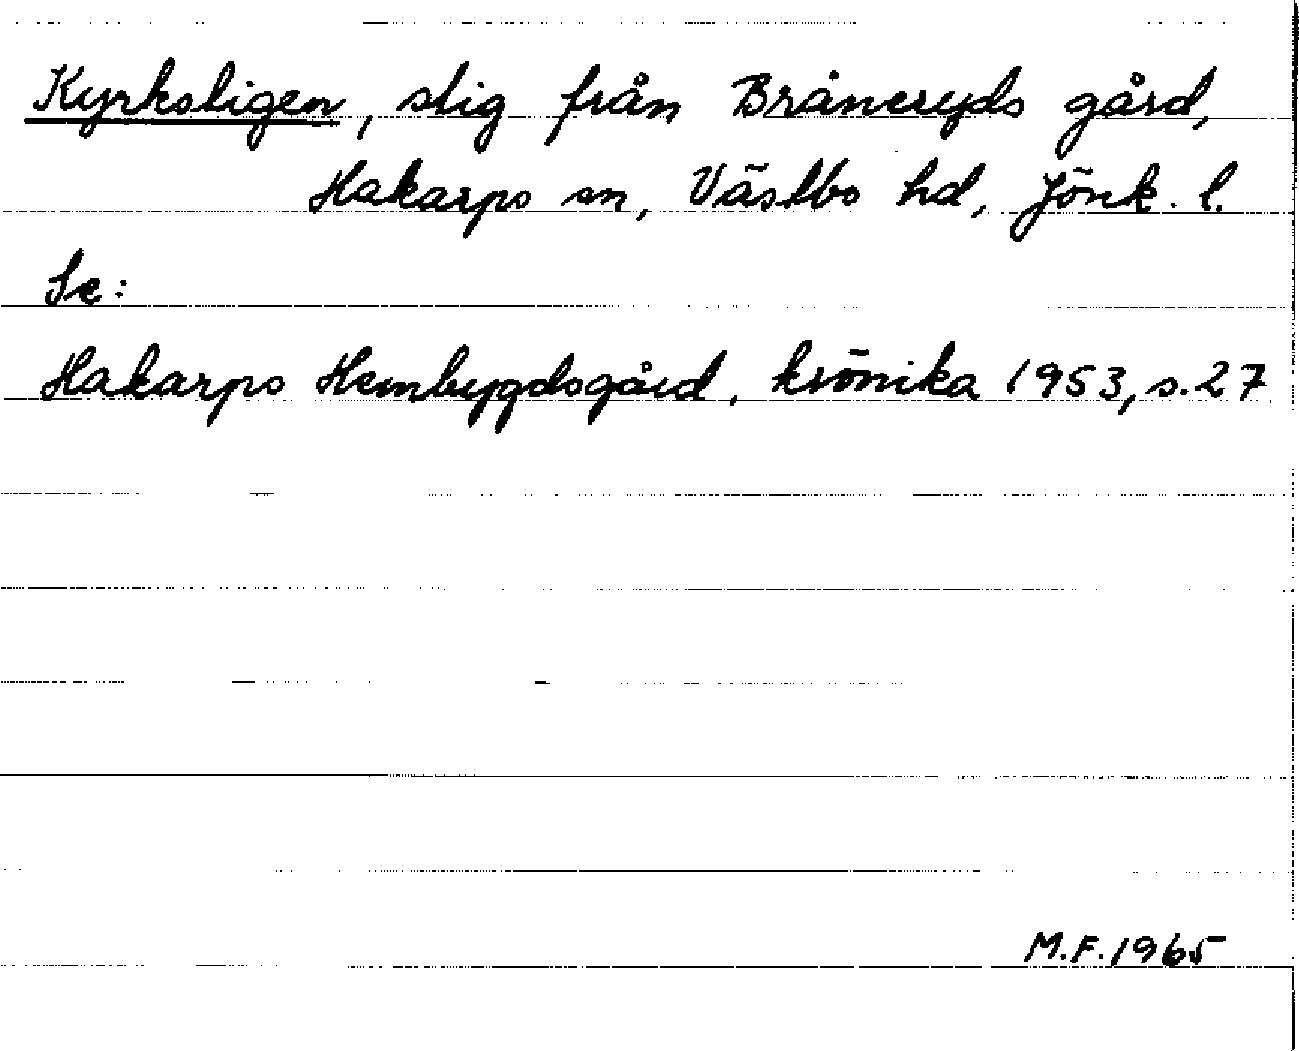 Kyrkstigen, stig från Bråneryds gård,
Hakarps sn, Västbo hd, Jönk. l.
Se:
Hakarps Hembygdsgård, krönika 1953, s. 27
M.F. 1965